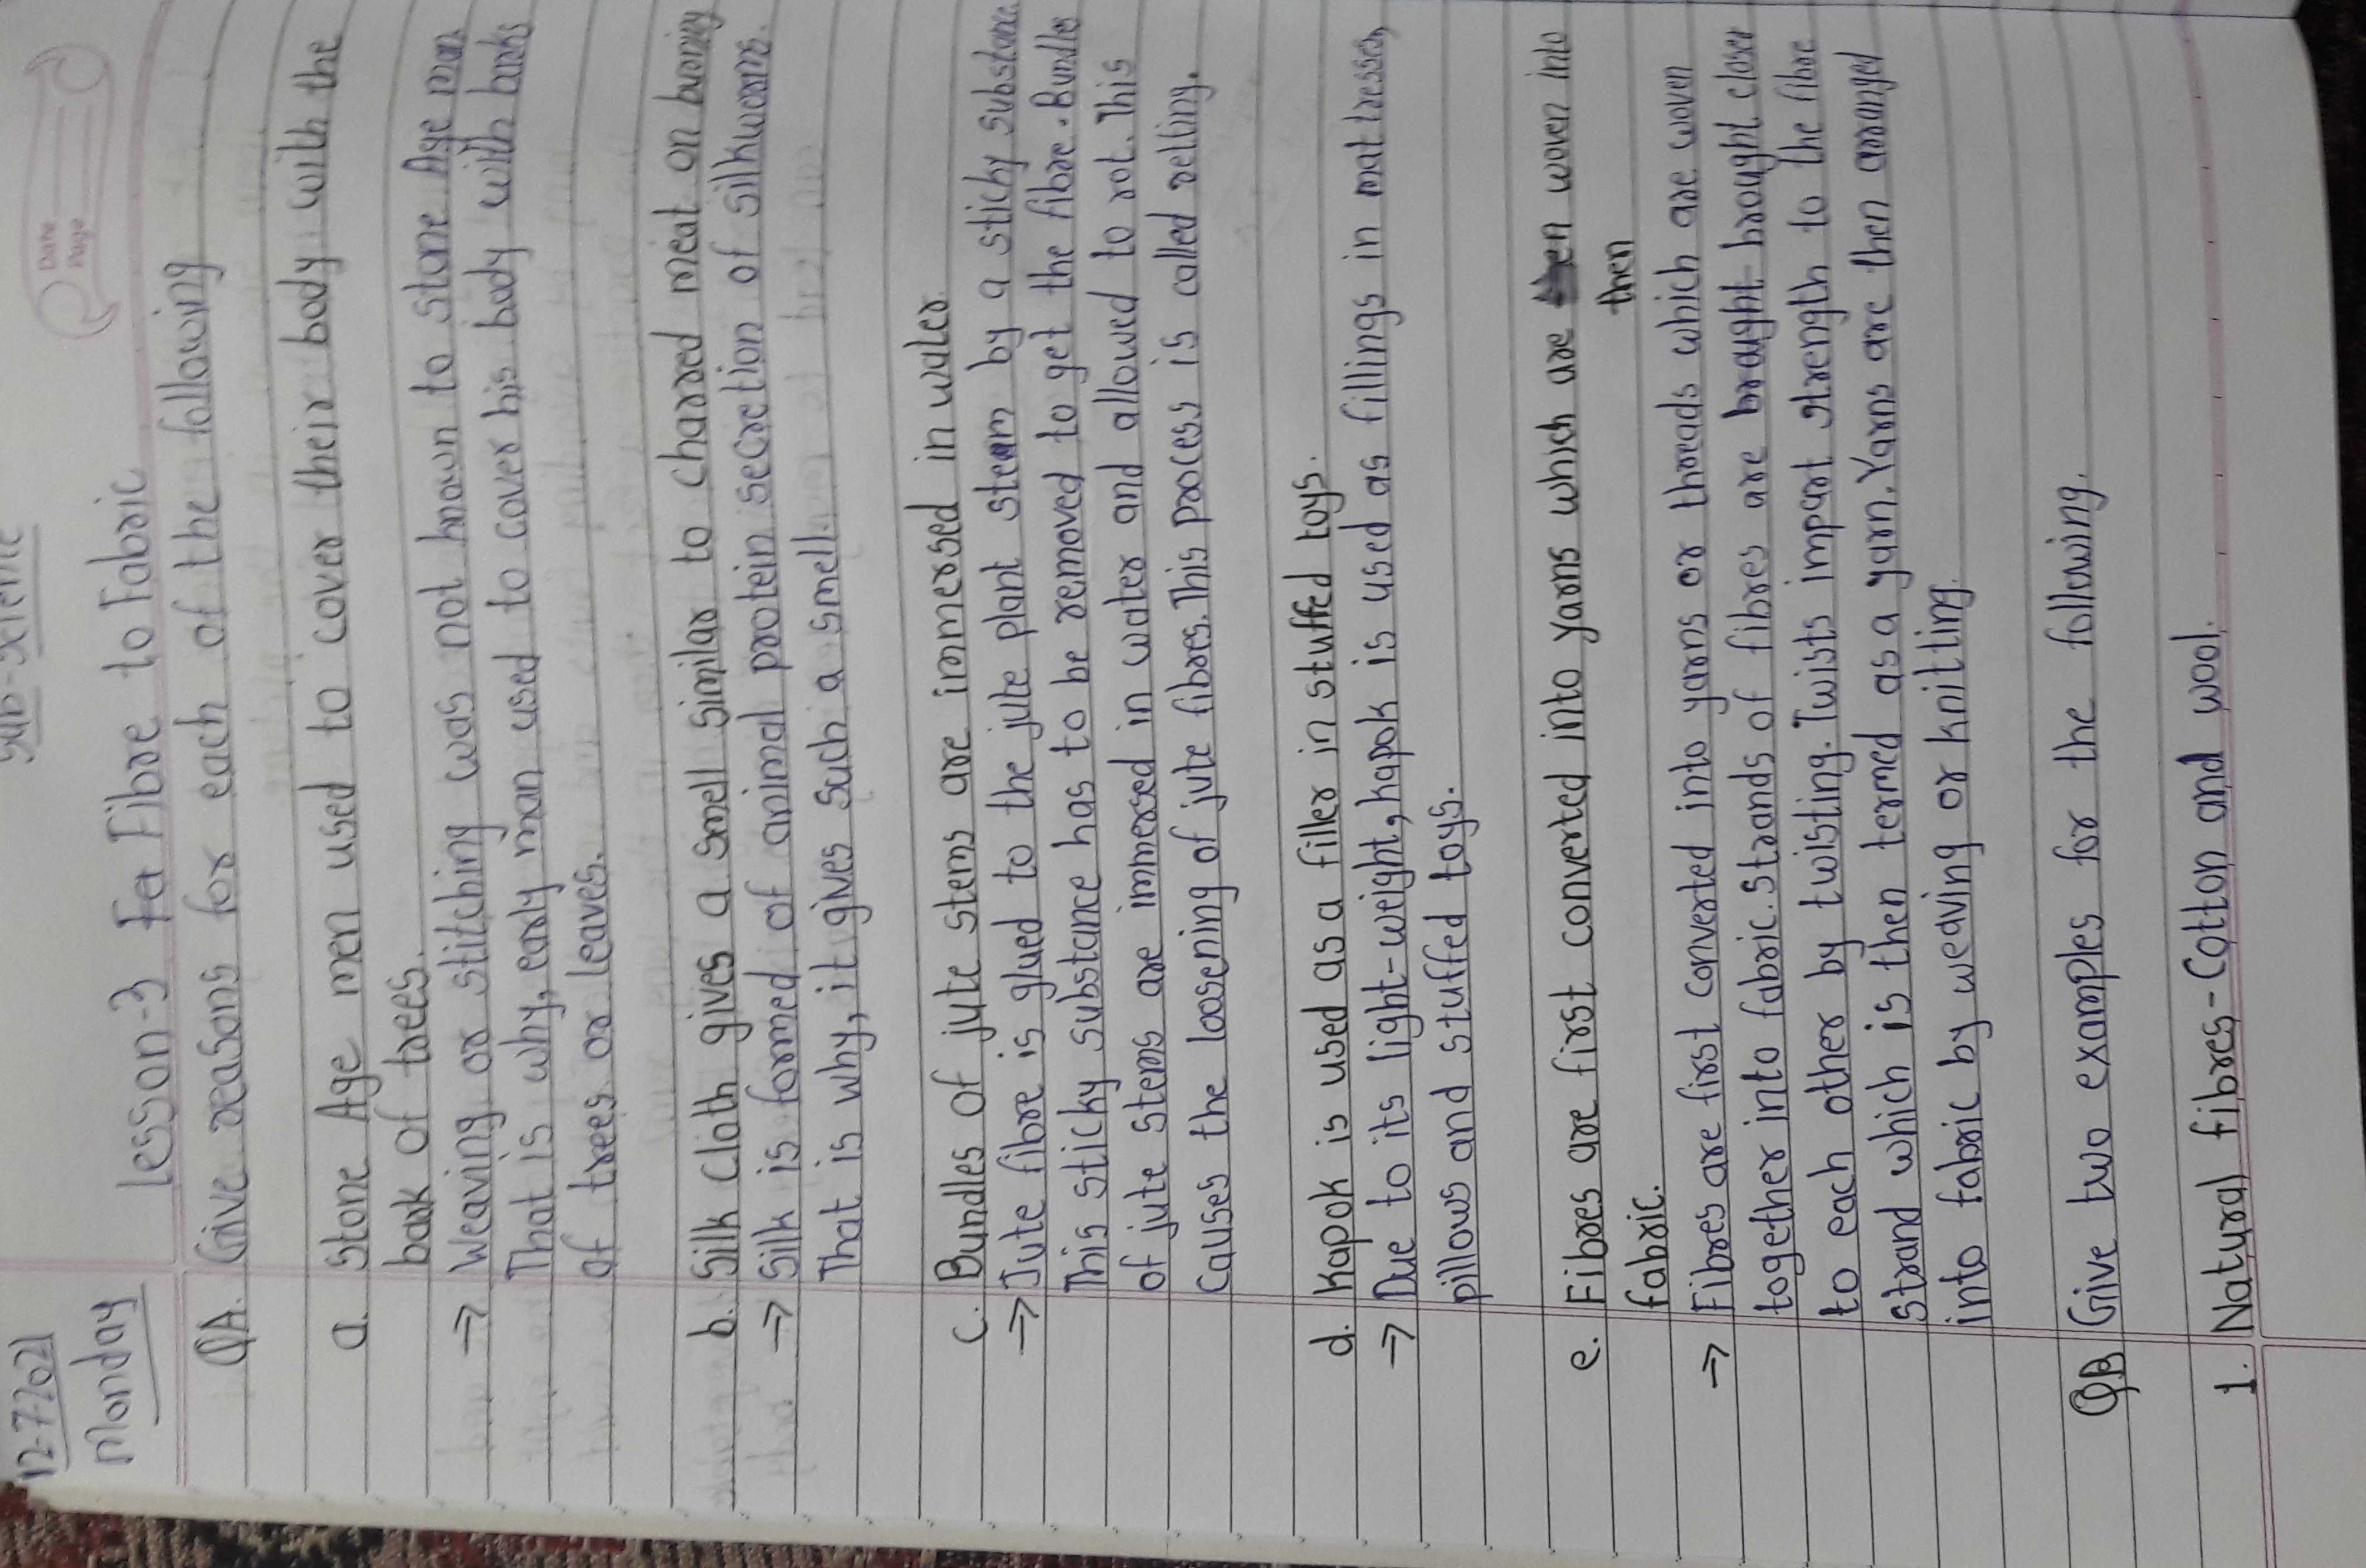 12-7-2021
Monday
Sub-Science
Date
Page
Lesson-3 Fa Fibre to Fabric
QA. Give reasons for each of the following
a. Stone Age men used to cover their body with the
bark of trees.
→ Weaving or stitching was not known to stone Age man
That is why, early man used to cover his body with barks
of trees or leaves.
b. Silk cloth gives a smell similar to charred meat on burning
→ Silk is formed of animal protein secretion of silkworms.
That is why, it gives such a smell.
c. Bundles of jute stems are immersed in water.
→ Jute fibre is glued to the jute plant stem by a sticky substance.
This sticky substance has to be removed to get the fibre. Bundles
of jute stems are immersed in water and allowed to rot. This
causes the loosening of jute fibres. This process is called retting.
d. Kapok is used as a filler in stuffed toys.
→ Due to its light-weight, kapok is used as fillings in mattresses,
pillows and stuffed toys.
e. Fibres are first converted into yarns which are woven into
then
fabric.
→ Fibres are first converted into yarns or threads which are woven
together into fabric. Strands of fibres are braught brought closer
to each other by twisting. Twists impart strength to the fibre
strand which is then termed as a yarn. Yarns are then arranged
into fabric by weaving or knitting.
QB Give two examples for the following.
1. Natural fibres-Cotton and wool.